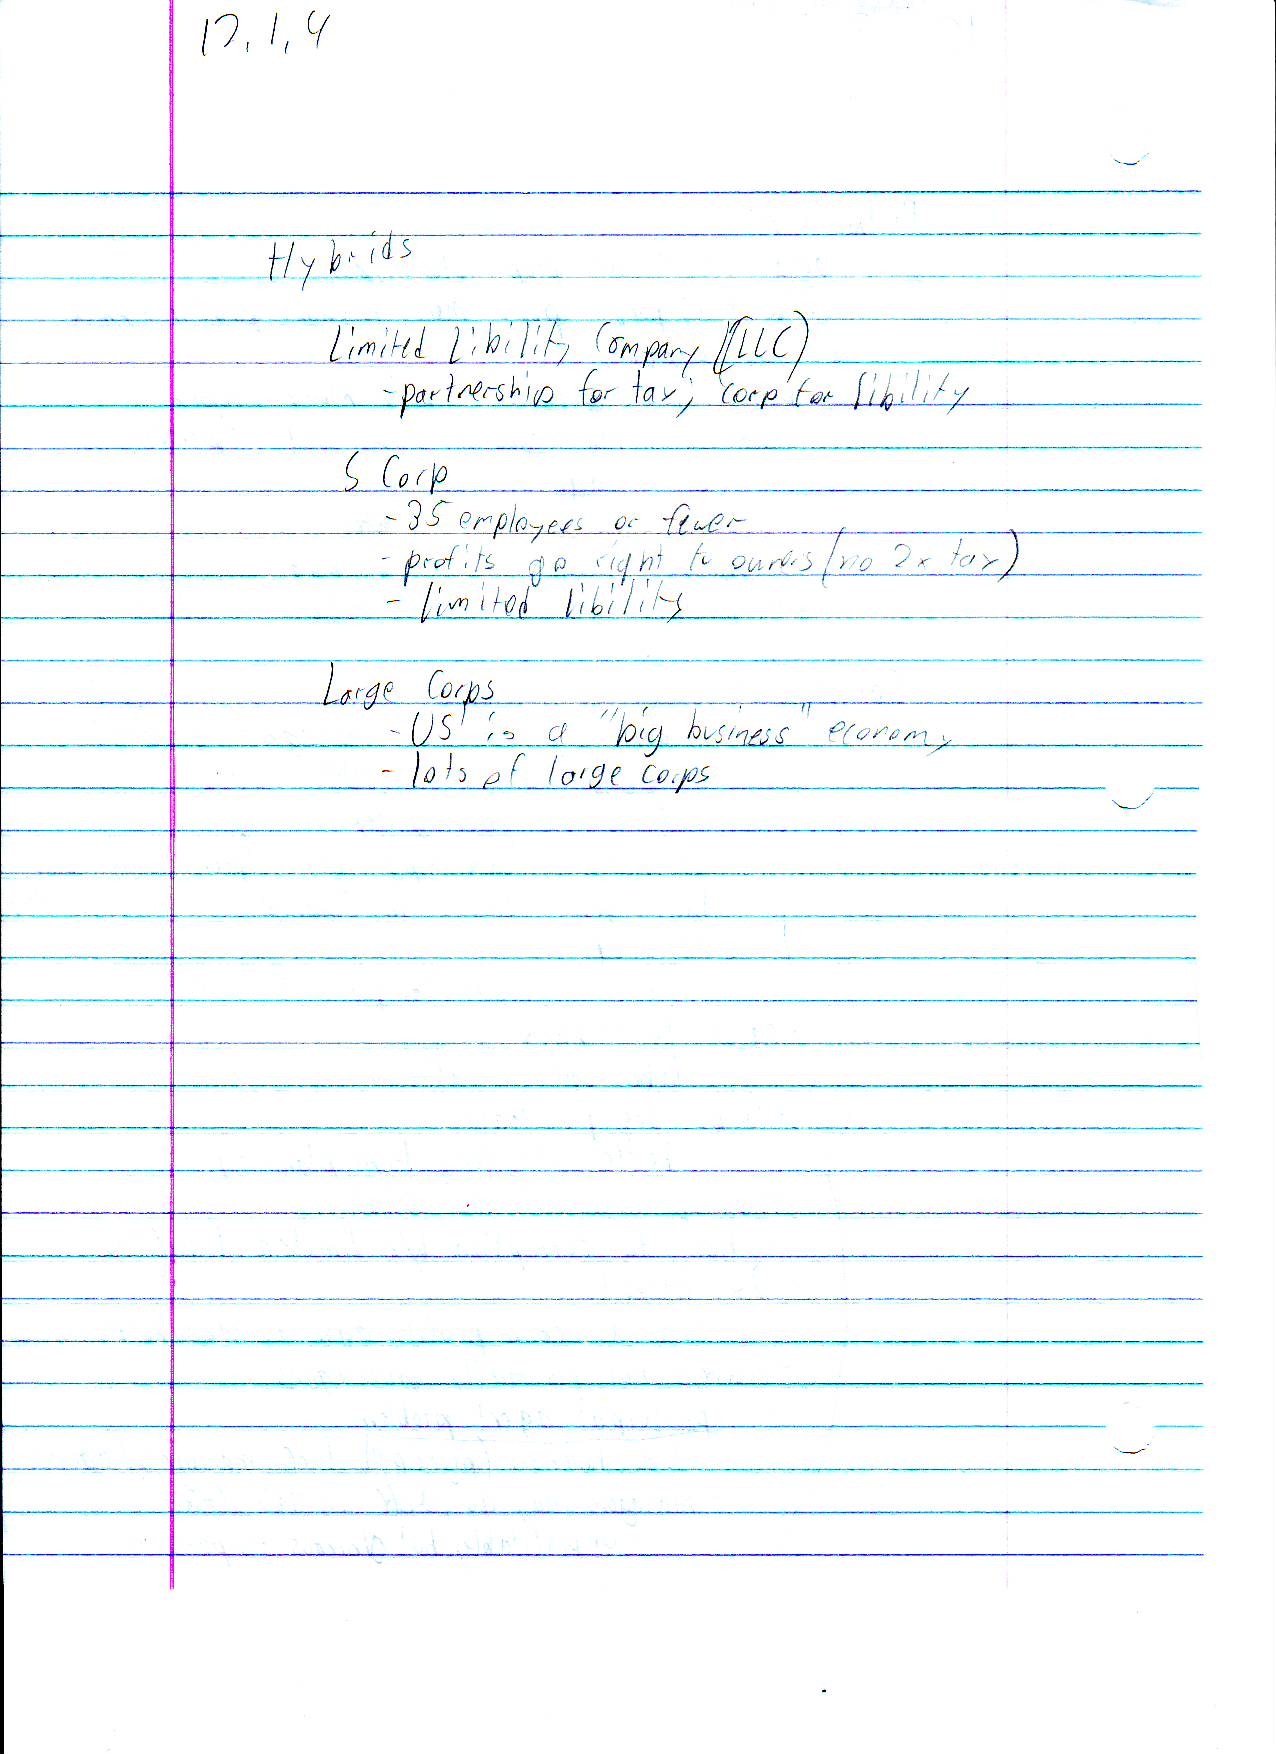 17.1.4
Hybrids
Limited Libility Company (LLC)
-partnership for tax; corp for libility
S Corp
-35 employees or fewer
-profits go right to owners (no 2x tax)
- limited libility
Large Corps
-US is a "big business" economy
- lots of large corps